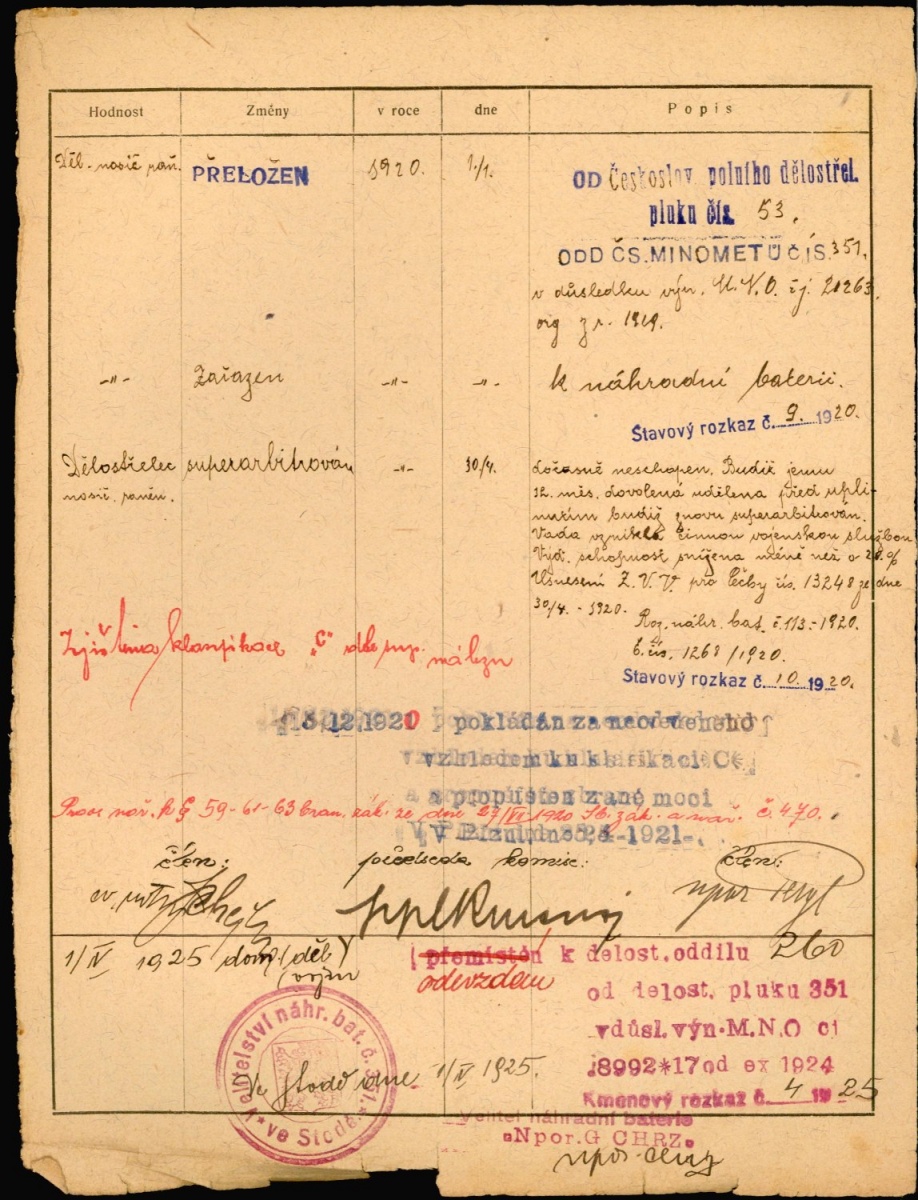 Hodnost Změny v roce dne Popis
Děl. nosič raň. PŘELOŽEN 1920. 1./1. OD Českoslov. polního dělostřel.
pluku čís. 53.
ODD ČS. MINOMETŮ ČÍS. 351.
v důsledku výn. M.N.O. čj. 21263
org z r. 1919.
-"- Zařazen -"- -"- k náhradní baterii.
Stavový rozkaz č. 9. 1920.
Dělostřelec superarbitrován -"- 30/4. dočasně neschopen. Budiž jemu
nosič raněn. 12 měs. dovolená udělena před upli-
nutím budiž znovu superarbitrován.
Vada vznikla činnou vojenskou službou
Výd. schopnost snížena méně než o 20%
Usnesení Z.V.V. pro Čechy čís. 13248 ze dne
30/4. - 1920.
Roz. náhr. bat. č. 113.-1920.
E. čís. 1268/1920.
Zjištěna klasifikace "C" dle sup. nálezu
Stavový rozkaz č. 10. 1920.
12.1920 pokládán za neodvedeného
vzhledem ku klasifikaci C
a propuštěn z branné moci
Prove nař. k § 59-61-63 bran. zák. ze dne 27/VI 1920 Sb. zák. a nař. č. 470.
V Plzni dne 1921.
člen: předseda komise: člen:
1/IV 1925 (děl) přemístěn k delost. oddílu 260
odevzdán
od delost. pluku 351
v důsl. výn. M.N.O čj
18992*17 od ex 1924
Ve Stodě dne 1/IV 1925.
Kmenový rozkaz č. 4 1925
Velitelství náhr. bat. č. 351. * ve Stodě. *
Velitel náhradní baterie
Npor. G CHRZ